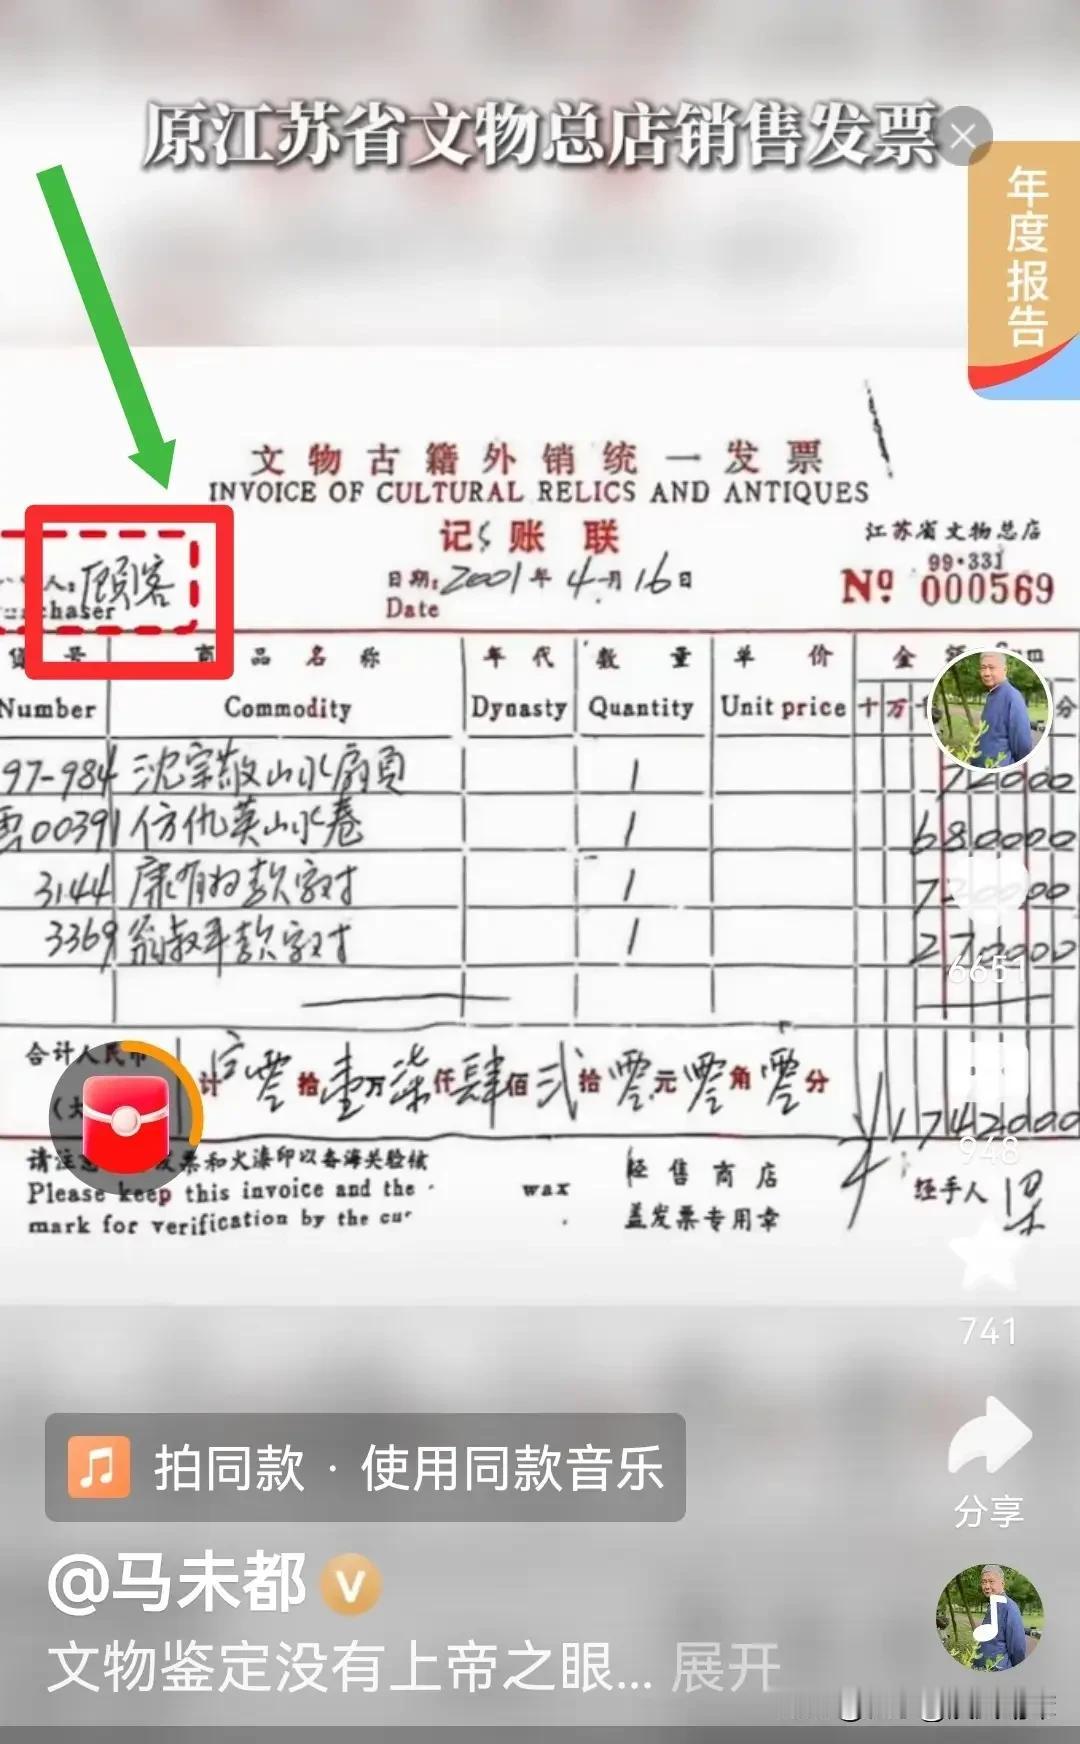 原江苏省文物总店销售发票
年度报告
文物古籍外销统一发票
INVOICE OF CULTURAL RELICS AND ANTIQUES
记账联
江苏省文物总店
99·331
人: 顾客
chaser
日期: 2001年4月16日
Date
Nº 000569
货号 商品名称 年代 数量 单价 金额 Sum
Number Commodity Dynasty Quantity Unit price 十 万 分
97-984 沈宗敬山水扇页 1 72000
00391 仿仇英山水卷 1 680000
3144 康有为款字对 1 7 00
3369 翁叔平款字对 1 2 000
6651
合计人民币
计 零拾壹万柒仟肆佰贰拾零元零角零分 1742000
948
请注意 发票和火漆印以备海关验核
Please keep this invoice and the wax
mark for verification by the cu
经售商店
盖发票专用章
经手人 梁
741
分享
拍同款 · 使用同款音乐
@马未都 V
文物鉴定没有上帝之眼... 展开